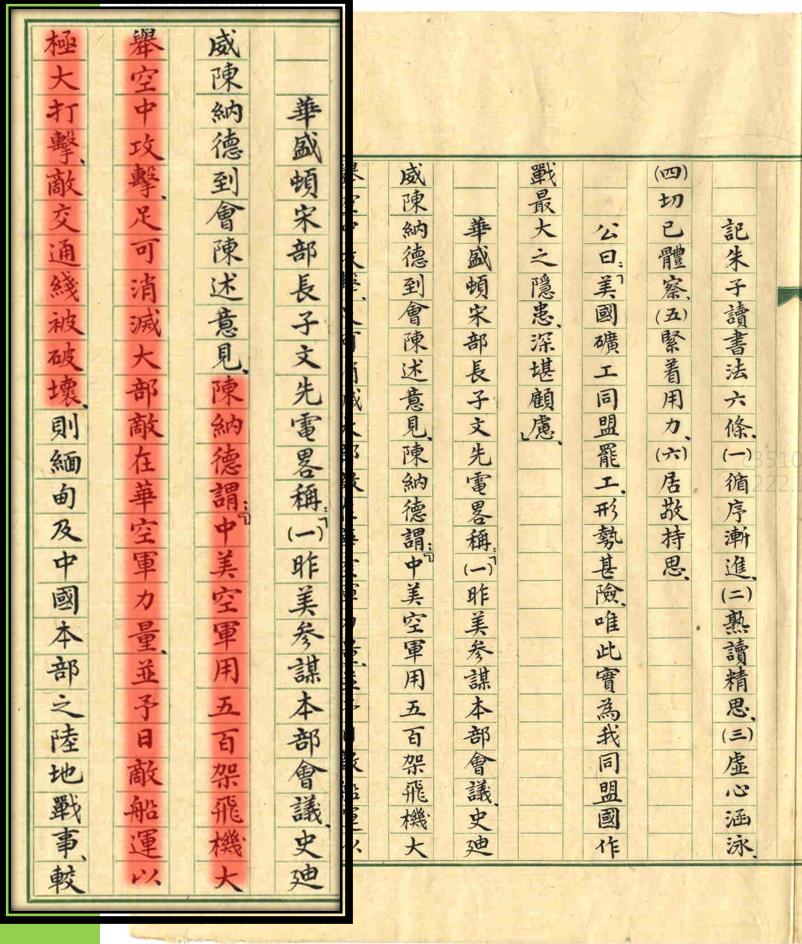 記朱子讀書法六條、(一)循序漸進、(二)熟讀精思、(三)虛心涵泳、
(四)切已體察、(五)緊着用力、(六)居敬持思。
公曰:「美國礦工同盟罷工、形勢甚險、唯此實為我同盟國作
戰最大之隱患、深堪顧慮」、
華盛頓宋部長子文先電畧稱:「(一)昨美參謀本部會議、史廸
威陳納德到會陳述意見、陳納德謂:「中美空軍用五百架飛機大
華盛頓宋部長子文先電畧稱:「(一)昨美參謀本部會議、史廸
威陳納德到會陳述意見、陳納德謂:「中美空軍用五百架飛機大
舉空中攻擊、足可消滅大部敵在華空軍力量、並予日敵船運以
極大打擊、敵交通綫被破壞、則緬甸及中國本部之陸地戰事、較